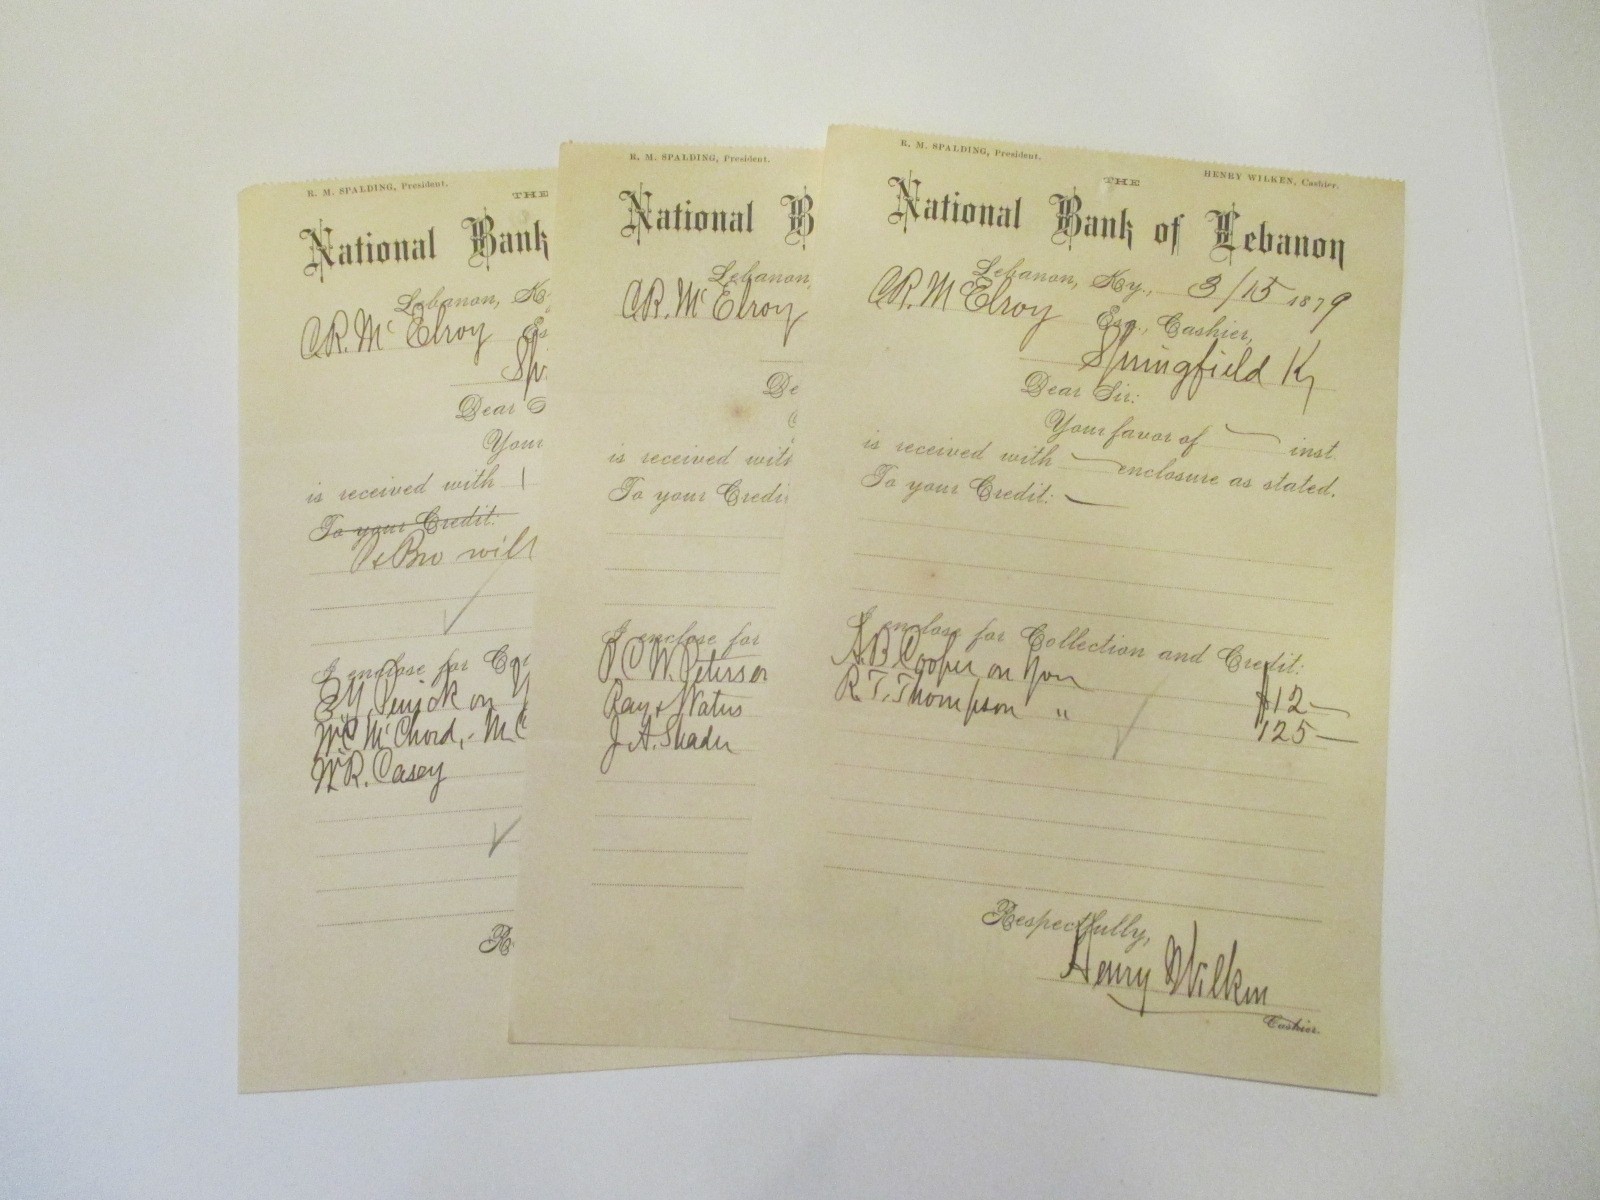 R. M. SPALDING, President.
THE
National Bank
Lebanon, Ky
CR. McElroy Es
Sp
Dear S
Your
is received with 1
To your Credit:
will
I enclose for Co
Penick on
WC McChord, - McC
W.R. Casey
R
R. M. SPALDING, President.
National B
Lebanon,
CR. McElroy
De
is received with
To your Credi
I enclose for
P C W. Peterson
Ray &
J.A. Shader
R. M. SPALDING, President. HENRY WILKEN, Cashier.
THE
National Bank of Lebanon
Lebanon, Ky., 3/15 1879
CR. McElroy Esq., Cashier,
Springfield Ky
Dear Sir:
Your favor of — inst.
is received with — enclosure as stated.
To your Credit: —
I enclose for Collection and Credit:
A.B Cooper on you 112—
R.T. Thompson " 125—
Respectfully,
Henry Wilken
Cashier.